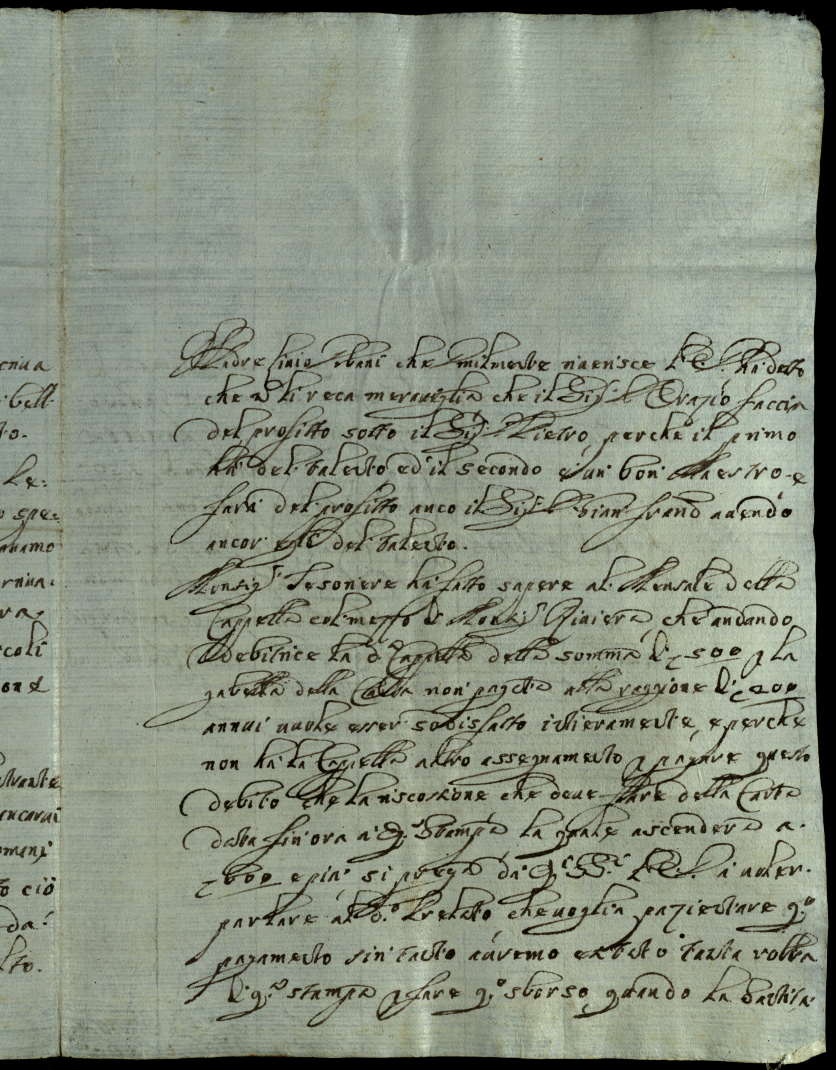 enua
bell
to.
Le:
o spe:
auamo
ernua.
ra,
ccoli
on e
trante
ancarui
omini
to ciò
da:
lto.
Padre Livio Urbani che humilmente riverisce V. E. ha detto
che non li reca meraviglia che il Sig.r Orazio faccia
del profitto sotto il Sig.r Pietro, perche il primo
ha del talento ed il secondo è un bon Maestro, e
farà del profitto anco il Sig.r Gian Franc.o avendo
ancor egli del talento.
Monsig.r Tesoriere ha fatto sapere al Mensale della
Cappella col messo di Monsig.r Riviera che andando
debitrice la d.a Cappella della somma di 500 p la
gabella della Carta non pagata alla raggione di 200
annui vuole esser sodisfatto intieramente, e perche
non ha la Cappella altro assegnamento p pagare questo
debito che la riscossione che deve fare della Carta
data fin'ora a q.a Stampa la quale ascenderà a
600 e piu si prega da q.i SS.i V. E. a voler
parlare al d.o Prelato che voglia pazientare q.o
pagamento sin tanto avremo exbito tanta robba
di q.a stampa p fare q.o sborso, quando la Santità